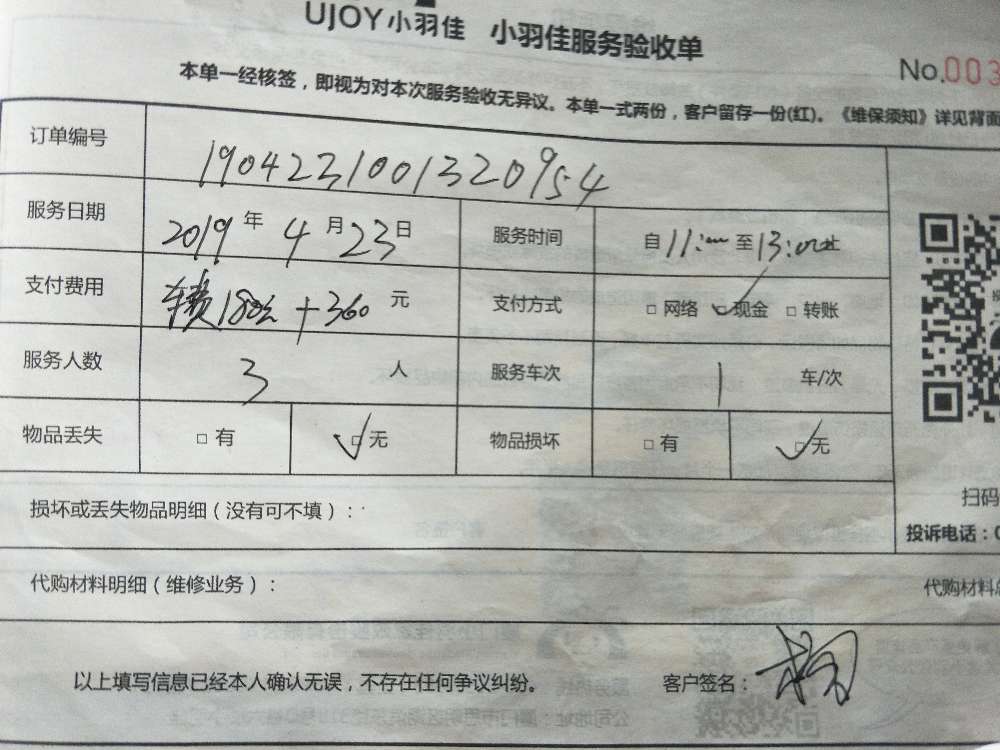 UJOY小羽佳 小羽佳服务验收单
No.003
本单一经核签，即视为对本次服务验收无异议。本单一式两份，客户留存一份(红)。《维保须知》详见背面
订单编号 190423100132 0954
服务日期 2019年4月23日 服务时间 自11: 至13: 止
支付费用 车费180元+360元 支付方式 □网络 ✓现金 □转账
服务人数 3人 服务车次 1车/次
物品丢失 □有 ✓□无 物品损坏 □有 ✓□无
损坏或丢失物品明细（没有可不填）：
扫码
投诉电话：0
代购材料明细（维修业务）： 代购材料
以上填写信息已经本人确认无误，不存在任何争议纠纷。 客户签名：